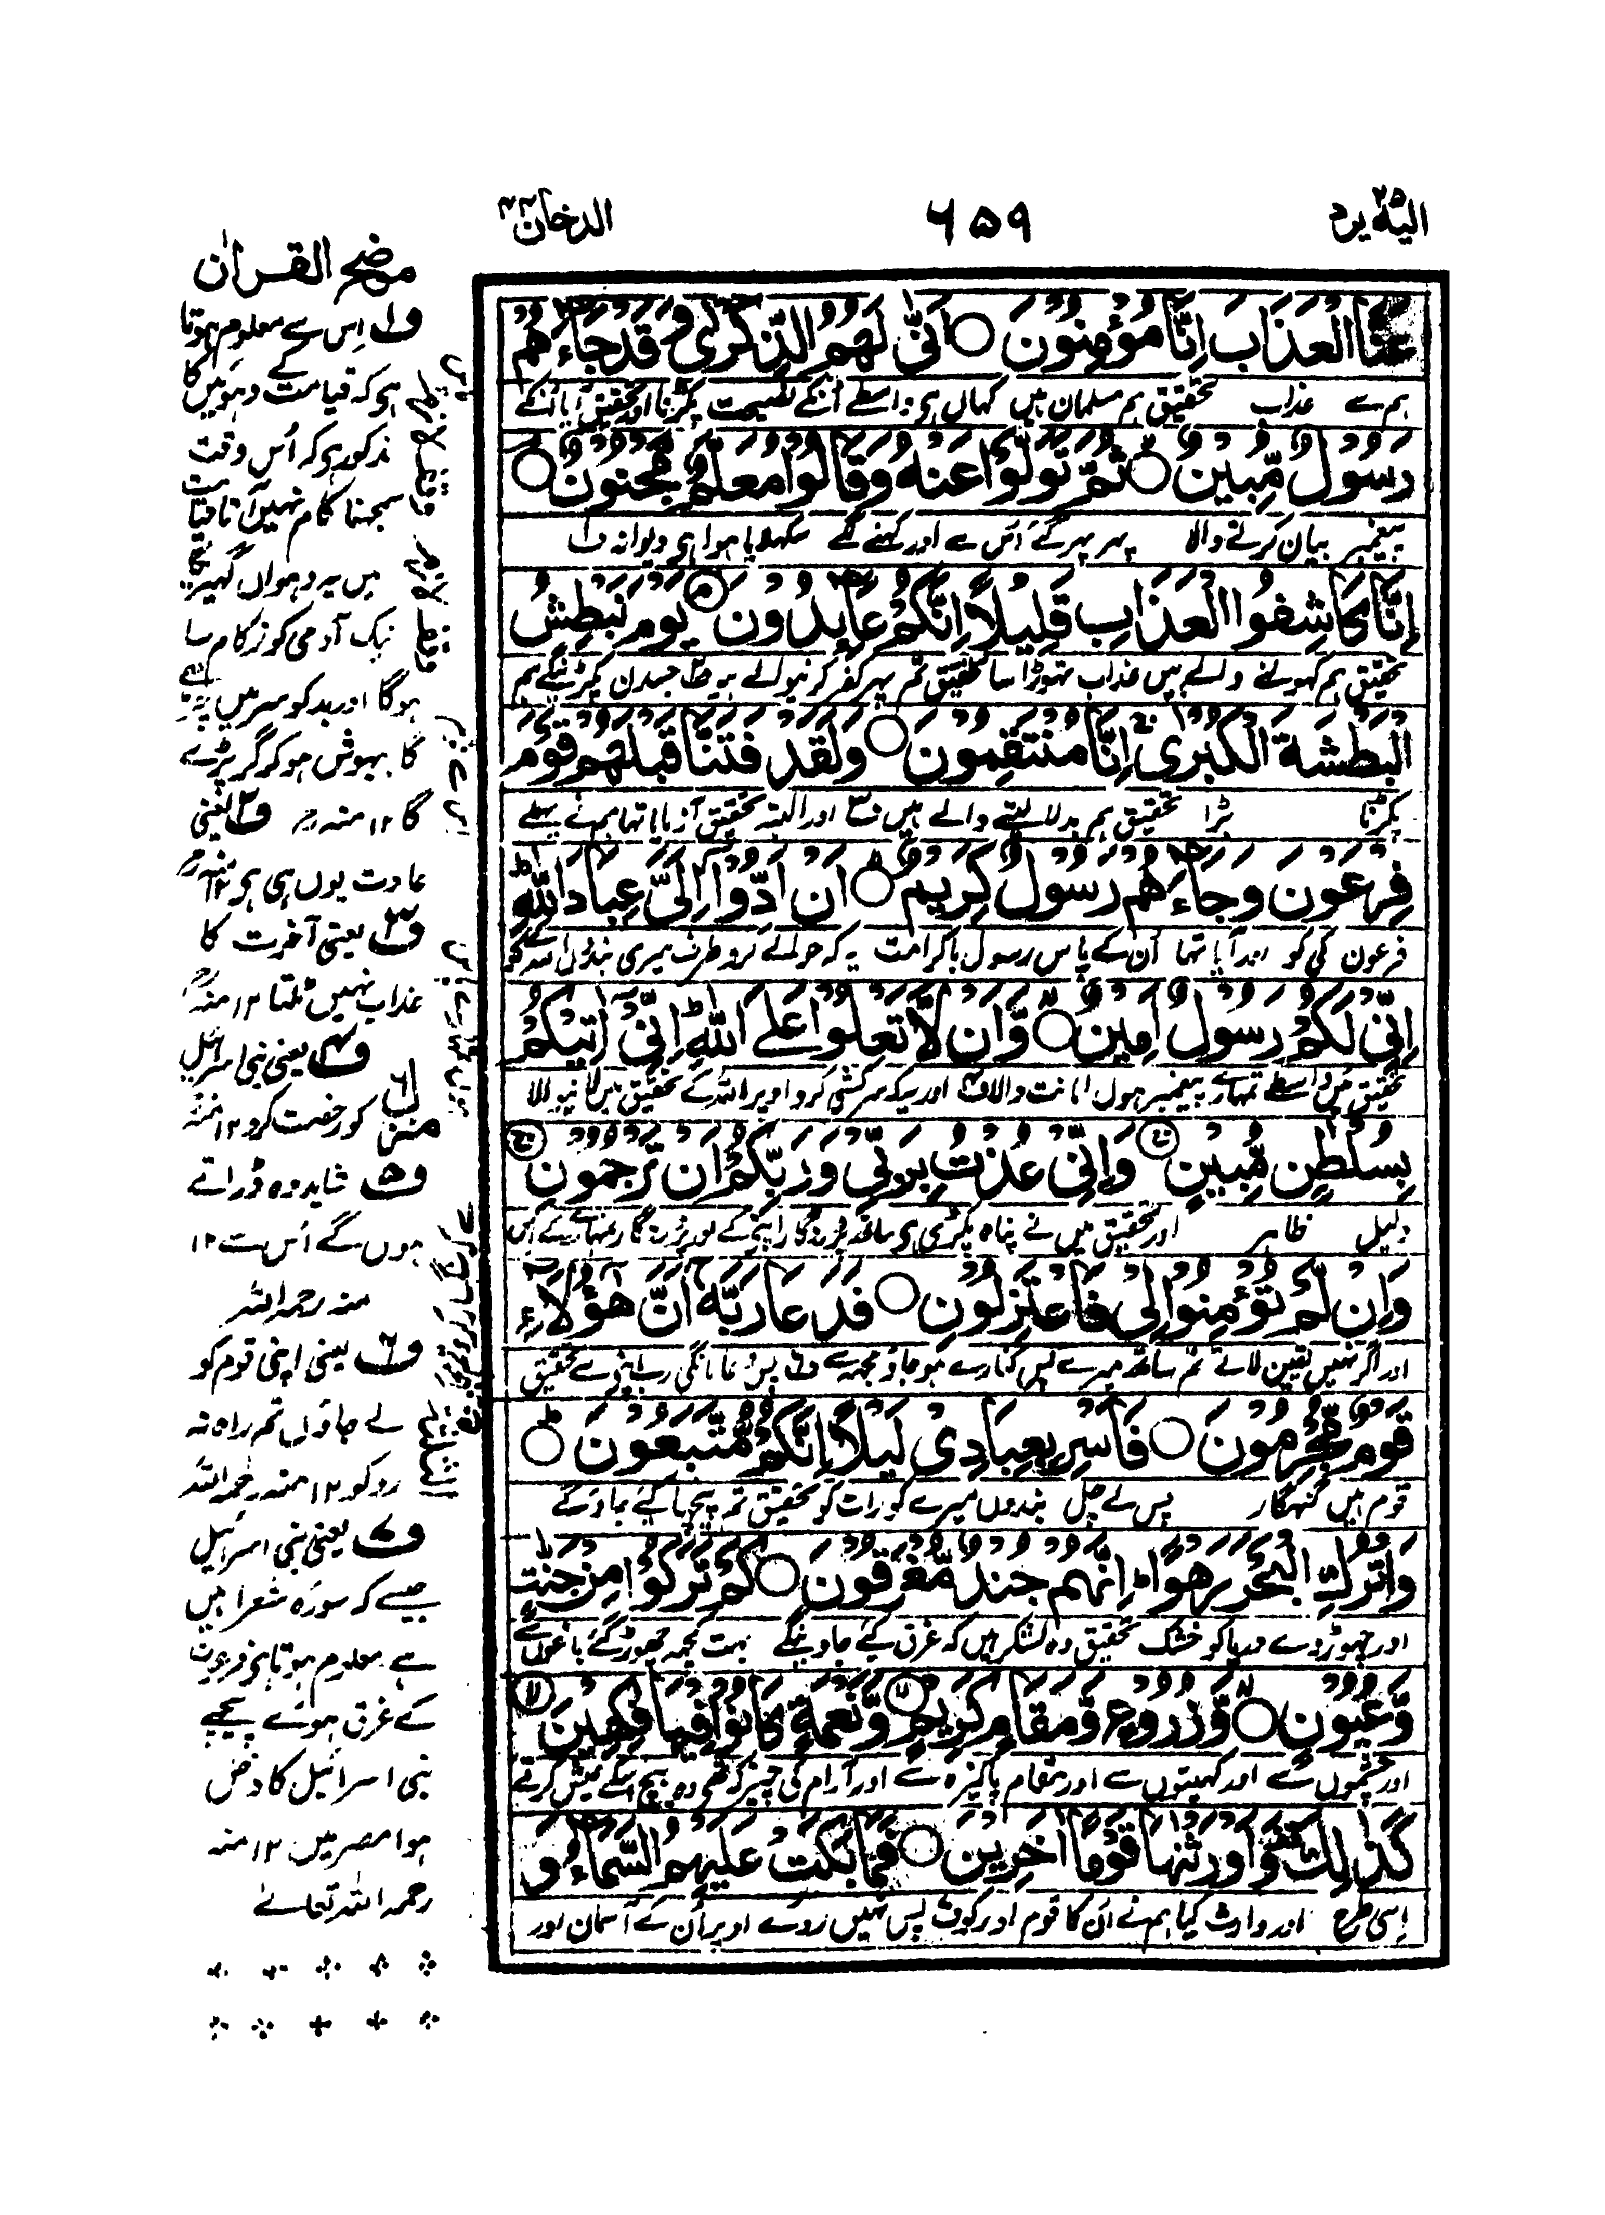 الیه یرد ۲۵
۶۵۹
الدخان ۴۴
عَنَّا الْعَذَابَ اِنَّا مُؤْمِنُوْنَ ○ اَنّٰی لَهُمُ الذِّكْرٰی وَقَدْ جَآءَهُمْ
ہم سے عذاب تحقیق ہم مسلمان ہیں کہاں ہی واسطے اُنکے نصیحت پکڑنا اور تحقیق آیا اُنکے
رَسُوْلٌ مُّبِیْنٌ ○ ثُمَّ تَوَلَّوْا عَنْهُ وَقَالُوْا مُعَلَّمٌ مَّجْنُوْنٌ ○
پیغمبر بیان کرنے والا پہر پہر گئے اُس سے اور کہنے لگے سکہلایا ہوا ہی دیوانہ ف۱
اِنَّا كَاشِفُوا الْعَذَابِ قَلِیْلًا اِنَّكُمْ عَآئِدُوْنَ ○ یَوْمَ نَبْطِشُ
تحقیق ہم کہولنے والے ہیں عذاب تہوڑا سا تحقیق تم پہر کفر کرنیوالے ہو ف۲ جسدن پکڑینگے ہم
الْبَطْشَةَ الْكُبْرٰی اِنَّا مُنْتَقِمُوْنَ ○ وَلَقَدْ فَتَنَّا قَبْلَهُمْ قَوْمَ
پکڑنا بڑا تحقیق ہم بدلا لینے والے ہیں ف۳ اور البتہ تحقیق آزمایا تہا ہمنے پہلے
فِرْعَوْنَ وَجَآءَهُمْ رَسُوْلٌ كَرِیْمٌ ○ اَنْ اَدُّوْۤا اِلَیَّ عِبَادَ اللّٰهِ
فرعون کی کو اور آیا تہا اُن کے پاس رسول باکرامت یہ کہ حوالے کرو طرف میری بندوں اللہ کو
اِنِّیْ لَكُمْ رَسُوْلٌ اَمِیْنٌ ○ وَّاَنْ لَّا تَعْلُوْا عَلَی اللّٰهِ اِنِّیْۤ اٰتِیْكُمْ
تحقیق میں واسطے تمہارے پیغمبر ہوں امانت والا ف۴ اور یہ کہ سرکشی کرو اوپر اللہ کے تحقیق میں لانیوالا
بِسُلْطٰنٍ مُّبِیْنٍ ○ وَاِنِّیْ عُذْتُ بِرَبِّیْ وَرَبِّكُمْ اَنْ تَرْجُمُوْنِ ○
دلیل ظاہر اور تحقیق میں نے پناہ پکڑی ہی ساتھ پروردگار اپنے کے اور پروردگار تمہارے کے اس
وَاِنْ لَّمْ تُؤْمِنُوْا لِیْ فَاعْتَزِلُوْنِ ○ فَدَعَا رَبَّهٗۤ اَنَّ هٰۤؤُلَآءِ
اور اگر نہیں یقین لاتے تم ساتھ میرے پس کنارے ہو جاؤ مجہہ سے ف۶ پس دعا مانگی رب اپنے سے تحقیق
قَوْمٌ مُّجْرِمُوْنَ ○ فَاَسْرِ بِعِبَادِیْ لَیْلًا اِنَّكُمْ مُّتَّبَعُوْنَ ○
قوم ہیں گنہگار پس لے چل بندوں میرے کو رات کو تحقیق تم پیچہا کئے جاؤگے
وَاتْرُكِ الْبَحْرَ رَهْوًا اِنَّهُمْ جُنْدٌ مُّغْرَقُوْنَ ○ كَمْ تَرَكُوْا مِنْ جَنّٰتٍ
اور چہوڑ دے دریا کو خشک تحقیق وہ لشکر ہیں کہ غرق کئے جاوینگے بہت کچہ چہوڑ گئے باغوں سے
وَّعُیُوْنٍ ○ وَّزُرُوْعٍ وَّمَقَامٍ كَرِیْمٍ ○ وَّنَعْمَةٍ كَانُوْا فِیْهَا فٰكِهِیْنَ ○
اور چشموں سے اور کہیتوں سے اور مقام پاکیزہ سے اور آرام کی چیز کہ تہے وہ بیچ اسکے عیش کرتے
كَذٰلِكَ وَاَوْرَثْنٰهَا قَوْمًا اٰخَرِیْنَ ○ فَمَا بَكَتْ عَلَیْهِمُ السَّمَآءُ وَ
اِسی طرح اور وارث کیا ہمنے اُن کا قوم اور کو ف۷ پس نہیں روئے اوپر اُن کے آسمان اور
موضح القرآن
ف۱ اِس سے معلوم ہوتا
ہی کہ قیامت کے دہوئیں کا
مذکور ہی کہ اُس وقت
سمجہنا کام نہیں آتا قیامت
میں یہ دہواں گہیریگا
نیک آدمی کو زکام سا
ہوگا اور بد کو سر میں
گا بہوش ہو کر گر پڑے
گا ۱۲ منہ رح ف۲ یعنی
عادت یوں ہی ہی ۱۲ منہ رح
ف۳ یعنی آخرت کا
عذاب نہیں ٹلتا ۱۲ منہ رح
ف۴ یعنی بنی اسرائیل
کو رخصت کرو ۱۲ منہ
ف۵ شاید وہ ڈراتے
ہوں گے اُس سے ۱۲
منہ رحمہ اللہ
ف۶ یعنی اپنی قوم کو
لے جاؤں تم راہ نہ
روکو ۱۲ منہ رحمہ اللہ
ف۷ یعنی بنی اسرائیل
جیسے کہ سورہ شعرا میں
ہے معلوم ہوتا ہی فرعون
کے غرق ہوئے پیچہے
بنی اسرائیل کا دخل
ہوا مصر میں ۱۲ منہ
رحمہ اللہ تعالے